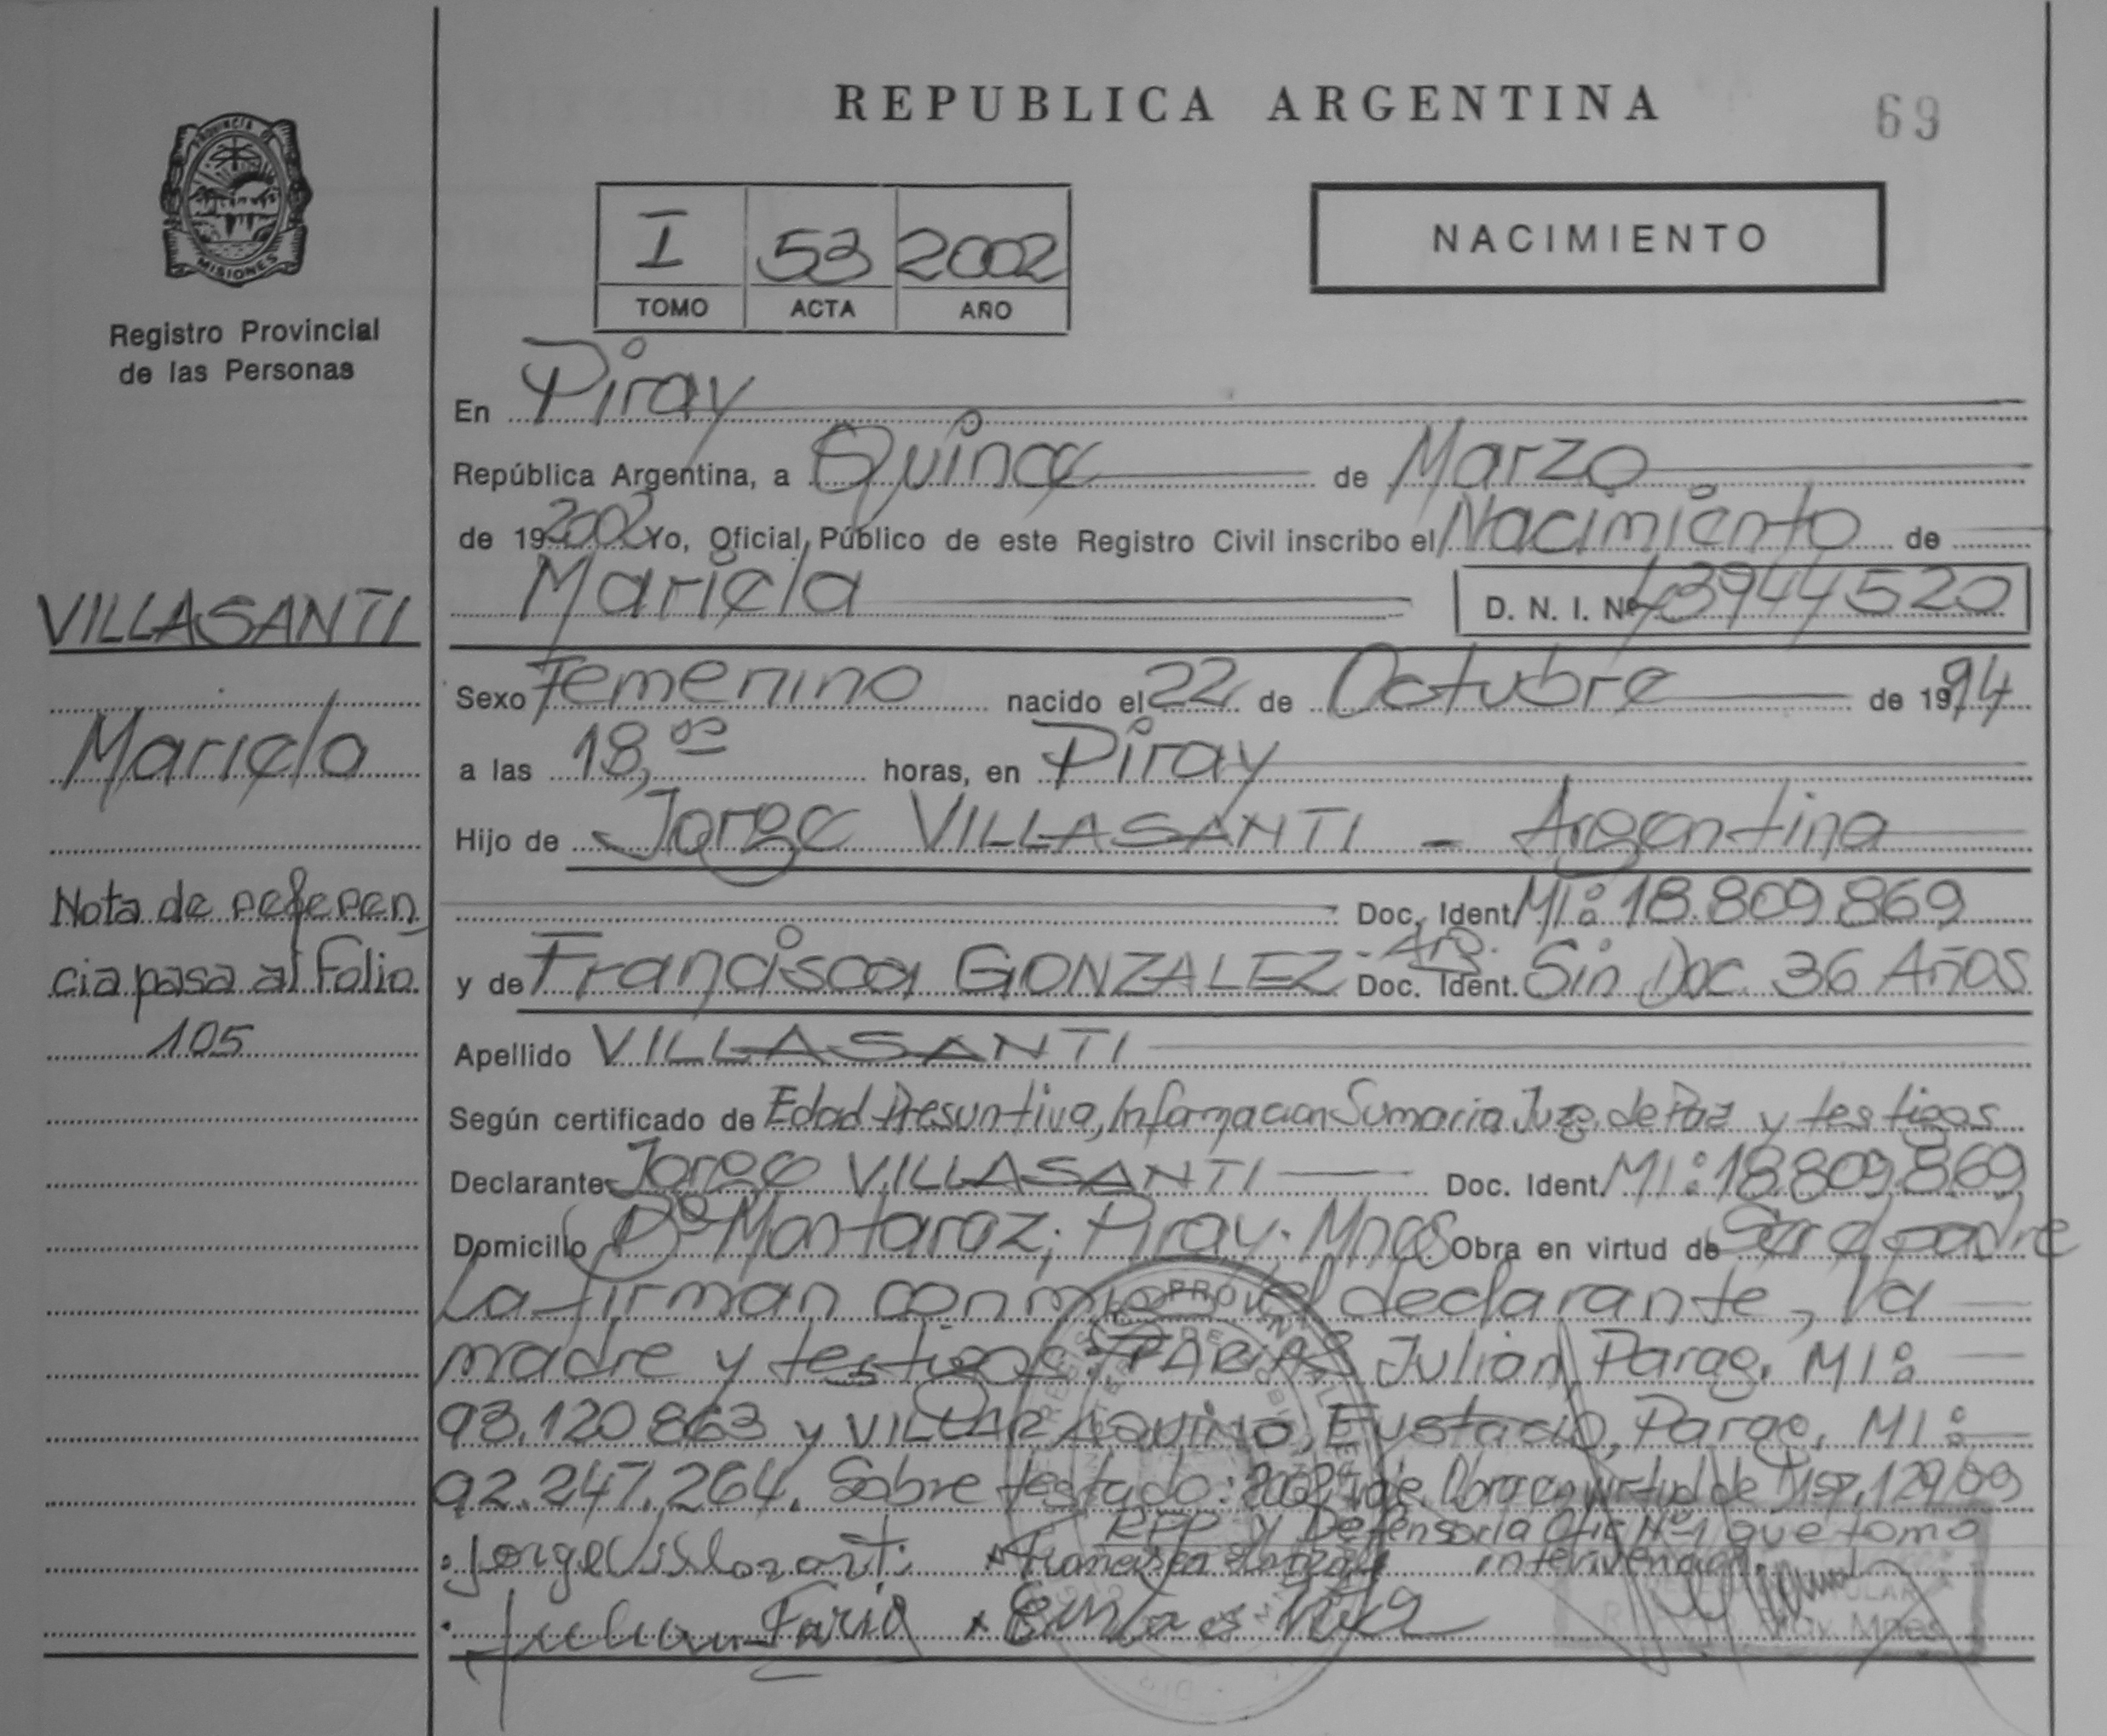 REPUBLICA ARGENTINA
69
PROVINCIA DE
MISIONES
Registro Provincial
de las Personas
I 53 2002
TOMO ACTA AÑO
NACIMIENTO
En Piray
República Argentina, a Quince de Marzo
de 19 2002 Yo, Oficial Público de este Registro Civil inscribo el Nacimiento de
Mariela D. N. I. Nº 43944520
VILLASANTI
Mariela
Nota de referen
cia pasa al Folio
105
Sexo Femenino nacido el 22 de Octubre de 1994
a las 18,00 horas, en Piray
Hijo de Jorge VILLASANTI - Argentina
Doc. Ident. MI: 18.809.869
y de Francisca GONZALEZ - Arg. Doc. Ident. Sin Doc. 36 Años
Apellido VILLASANTI
Según certificado de Edad Presuntiva, Informacion Sumaria Juzg. de Paz y testigos
Declarante Jorge VILLASANTI Doc. Ident. MI: 18.809.869
Domicilio Bº Montaraz; Piray; Mnes Obra en virtud de Ser el padre
La firman conmigo el declarante, la
madre y testigos: Julian, Parag. MI:
93.120.863 y VILLAR AQUINO, Eustacio, Parag. MI:
92.247.264. Sobre testado: 2002 Vale. Obra en virtud de 129/09
RPP y Defensoria Ofic. Nº 1 que tomo
intervencion.
Jorge Villasanti Francisca
Julian Faria
Piray Mnes